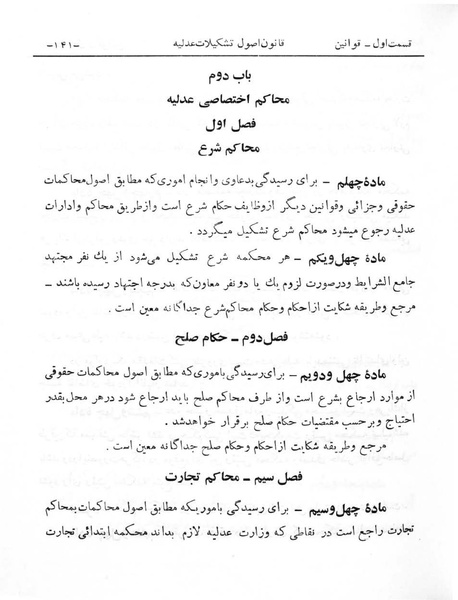 قسمت اول ـ قوانین
قانون اصول تشکیلات عدلیه
-۱۴۱-
باب دوم
محاکم اختصاصی عدلیه
فصل اول
محاکم شرع
مادۀ چهلم ـ برای رسیدگی بدعاوی وانجام اموری که مطابق اصول محاکمات
حقوقی وجزائی وقوانین دیگر از وظایف حکام شرع است واز طریق محاکم وادارات
عدلیه رجوع میشود محاکم شرع تشکیل میگردد .
مادۀ چهل ویکم ـ هر محکمه شرع تشکیل می شود از یك نفر مجتهد
جامع الشرایط ودرصورت لزوم یك یا دو نفر معاون که بدرجه اجتهاد رسیده باشند ـ
مرجع وطریقه شکایت از احکام وحکام محاکم شرع جداگانه معین است .
فصل دوم ـ حکام صلح
مادۀ چهل ودویم ـ برای رسیدگی باموری که مطابق اصول محاکمات حقوقی
از موارد ارجاع بشرع است واز طرف محاکم صلح باید ارجاع شود در هر محل بقدر
احتیاج و برحسب مقتضیات حکام صلح برقرار خواهد شد .
مرجع وطریقه شکایت از احکام وحکام صلح جداگانه معین است .
فصل سیم ـ محاکم تجارت
مادۀ چهل وسیم ـ برای رسیدگی باموریکه مطابق اصول محاکمات بمحاکم
تجارت راجع است در نقاطی که وزارت عدلیه لازم بداند محکمه ابتدائی تجارت